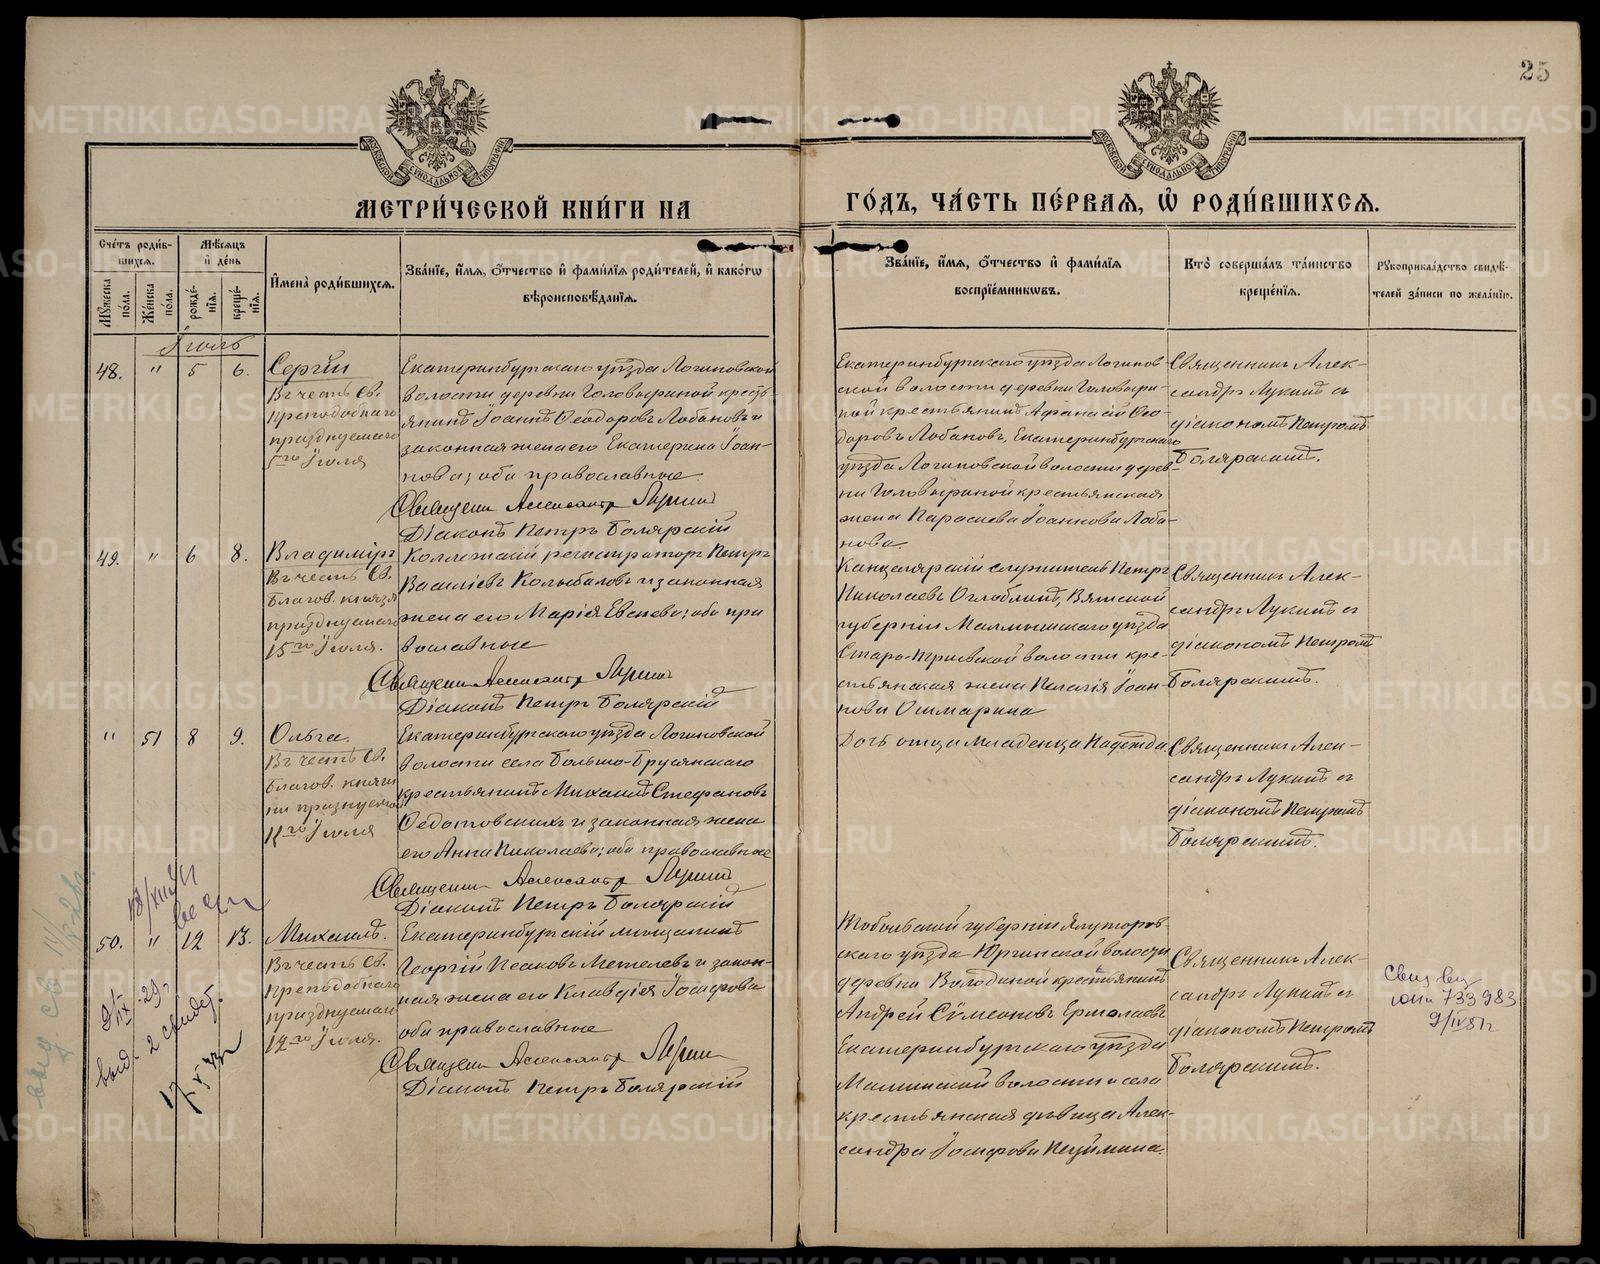 25
МЕТРИ́ЧЕСКОЙ КНИ́ГИ НА
ГО́ДЪ, ЧА́СТЬ ПЕ́РВАЯ, Ѽ РОДИ́ВШИХСЯ.
Сче́тъ роди́в-
шихся.
Мѣ́сяцъ
и҆ де́нь
Мꙋ́жеска
по́ла.
Же́нска
по́ла.
рожде́-
нїя.
креще́-
нїя.
И҆мена̀ роди́вшихся.
Зва́нїе, и҆́мя, ѻ҆́тчество и҆ фами́лїя роди́телей, и҆ како́гѡ
вѣроисповѣ́данїя.
Зва́нїе, и҆́мя, ѻ҆́тчество и҆ фами́лїя
воспрїе́мникѡвъ.
Кто̀ соверша́лъ та́инство
креще́нїя.
Рꙋкоприкла́дство свидѣ́-
телей за́писи по жела́нїю.
Іюль
48. " 5 6. Сергій
Въ честь Св.
преподобнаго
празднуемаго
5го Іюля
Екатеринбургскаго уѣзда Логиновской
волости деревни Головыриной кресть-
янинъ Іоаннъ Ѳеодоровъ Лобановъ и
законная жена его Екатерина Іоан-
нова; оба православные
Священн Александръ Лукинъ
Діаконъ Петръ Болярскій
Екатеринбургскаго уѣзда Логинов-
ской волости деревни Головыри-
ной крестьянинъ Афанасій Ѳео-
доровъ Лобановъ, Екатеринбургскаго
уѣзда Логиновской волости дерев-
ни Головыриной крестьянская
жена Параскева Іоаннова Лоба-
нова.
Священникъ Алек-
сандръ Лукинъ съ
діакономъ Петромъ
Болярскимъ.
49. " 6 8. Владиміръ
Въ честь Св.
Благов. князя
празднуемаго
15го Іюля.
Коллежскій регистраторъ Петръ
Василіевъ Колыбаловъ и законная
жена его Марія Евсѣева; оба пра
вославные
Священн Александръ Лукинъ
Діаконъ Петръ Болярскій
Канцелярскій служитель Петръ
Николаевъ Оглоблинъ, Вятской
губерніи Малмыжскаго уѣзда
Старо-Тріевской волости кре-
стьянская жена Пелагія Іоан-
нова Ошмарина
Священникъ Алек-
сандръ Лукинъ съ
діакономъ Петромъ
Болярскимъ.
" 51 8 9. Ольга.
Въ честь Св.
Благов. княги
ни празнуемой
11го Іюля
Екатеринбургскаго уѣзда Логиновской
волости села Больше-Брусянскаго
крестьянинъ Михаилъ Стефановъ
Ѳедотовскихъ и законная жена
его Анна Николаева; оба православные
Священн Александръ Лукинъ
Діаконъ Петръ Болярскій
Дочь отца младенца Надежда.
Священникъ Алек-
сандръ Лукинъ съ
діакономъ Петромъ
Болярскимъ.
50. " 12 13. Михаилъ.
Въ честь Св.
преподобнаго
празднуемаго
12го Іюля.
Екатеринбургскій мѣщанинъ
Георгій Исаковъ Метелевъ и закон-
ная жена его Клавдія Іосифова
оба православные
Священн Александръ Лукин
Діаконъ Петръ Болярскій
Тобольской губерніи Ялуторов-
скаго уѣзда Юргинской волости
деревни Володиной крестьянинъ
Андрей Сѵмеоновъ Ермолаевъ
Екатеринбургскаго уѣзда
волости и села
крестьянская дѣвица Алек-
сандра Іосифова
Священникъ Алек-
сандръ Лукинъ съ
діакономъ Петромъ
Болярскимъ.
733983
9/IV81г
9/IX-29г
выд. 2 свидет.